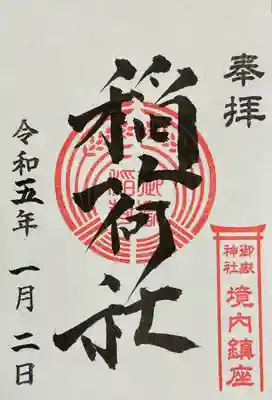 奉拝
御嶽神社
境内鎮座
稲荷社
令和五年 一月二日